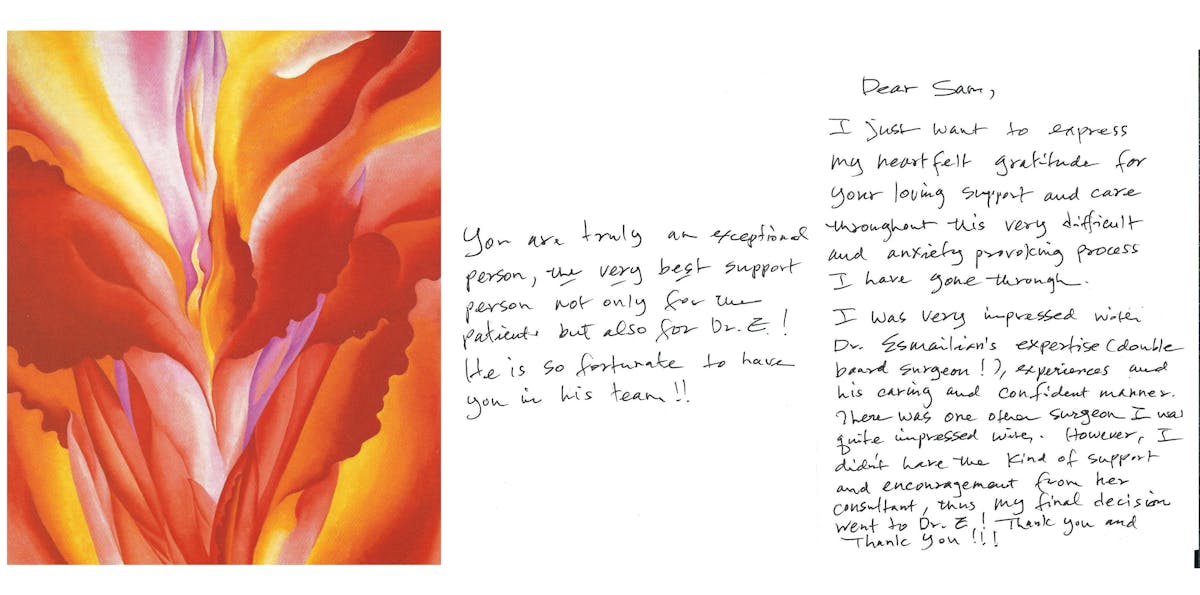 You are truly an exceptional
person, the very best support
person not only for the
patients but also for Dr. E!
He is so fortunate to have
you in his team!!
Dear Sam,
I just want to express
my heartfelt gratitude for
your loving support and care
throughout this very difficult
and anxiety provoking process
I have gone through.
I was very impressed with
Dr. Esmailian's expertise (double
board surgeon!), experiences and
his caring and confident manner.
There was one other surgeon I was
quite impressed with. However, I
didn't have the kind of support
and encouragement from her
consultant, thus my final decision
went to Dr. E! Thank you and
Thank you!!!